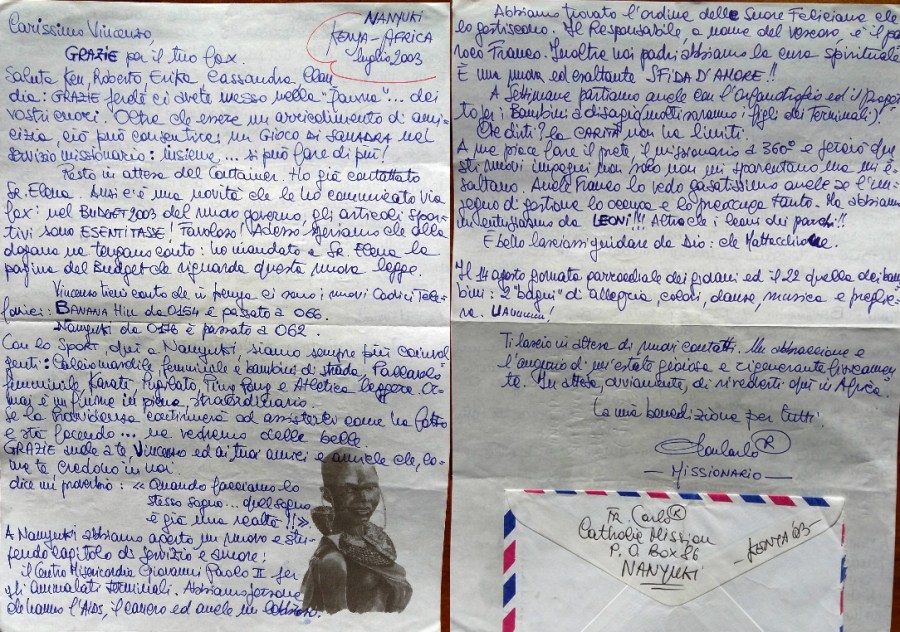 NANYUKI
KENYA-AFRICA
luglio 2003
Carissimo Vincenzo,
GRAZIE per il tuo fax.
Saluta Ken, Roberto, Erika, Cassandra, Clau
dia: GRAZIE perchè ci avete messo nella "favna"... dei
vostri cuori. Oltre che essere un arricchimento di ami-
cizia, ciò può consentirci un GIOCO DI SQUADRA nel
servizio missionario: insieme... si può fare di più!
Resto in attesa del Container. Ho già contattato
Sr. Elena. Anzi c'è una novità che le ho comunicato via
fax: nel BUDGET 2003 del nuovo governo, gli articoli spor-
tivi sono ESENTI TASSE! Favoloso! Adesso speriamo che alla
dogana ne tengano conto: ho mandato a Sr. Elena la
pagina del Budget che riguarda questa nuova legge.
Vincenzo tieni conto che in Kenya ci sono i nuovi Codici Tele-
fonici: BANANA Hill da 0154 è passato a 066.
Nanyuki da 0176 è passato a 062.
Con lo SPORT, qui a Nanyuki, siamo sempre più coinvol
genti: Calcio maschile femminile e bambini di strada, Pallavolo
femminile Karatè, Pugilato, Ping Pong e Atletica leggera. Or
mai è un fiume in piena, straordinario.
Se la Provvidenza continuerà ad assisterci come ha fatto
e sta facendo... ne vedremo delle belle.
GRAZIE anche a te, Vincenzo ed ai tuoi amici e amiche che, co-
me te credono in noi.
dice un proverbio: «Quando facciamo lo
stesso sogno... quel sogno
è già una realtà!!»
A Nanyuki abbiamo aperto un nuovo e stu-
pendo capitolo di servizio e amore:
il Centro Misericordia Giovanni Paolo II per
gli ammalati terminali. Abbiamo persone
che hanno l'AIDS, il cancro ed anche un lebbroso.
Abbiamo trovato l'ordine delle Suore Feliciane che
lo gestiscono. Il Responsabile, a nome del vescovo, è il par
roco Franco. Inoltre noi padri abbiamo la cura spirituale.
È una nuova ed esaltante SFIDA D'AMORE!!
A settimane partiamo anche con l'orfanotrofio ed il proget
to per i Bambini a disagio (molti saranno i figli dei Terminali)!
Che dirti? la CARITÀ non ha limiti.
A me piace fare il prete, il missionario a 360° e perciò que
sti nuovi impegni non solo non mi spaventano ma mi e-
saltano. Anche Franco lo vedo gasatissimo anche se l'im-
pegno di gestione lo occupa e lo preoccupa tanto. Ma abbiamo
un entusiasmo da LEONI!!! Altro che i leoni dei parchi!!
È bello lasciarsi guidare da Dio: che Mattacchione.
Il 14 agosto giornata parrocchiale dei giovani ed il 22 quella dei bam
bini: 2 "bagni" di allegria, colori, danze, musica e preghie-
ra. Uauuuuu!
Ti lascio in attesa di nuovi contatti. Un abbraccione e
l'augurio di un'estate gioiosa e rigenerante fisicamen-
te. In attesa, ovviamente, di rivederti qui in Africa.
La mia benedizione per tutti
- MISSIONARIO -
Fr. Carlo
Catholic Mission
P. O Box 86
NANYUKI
- KENYA '03 -